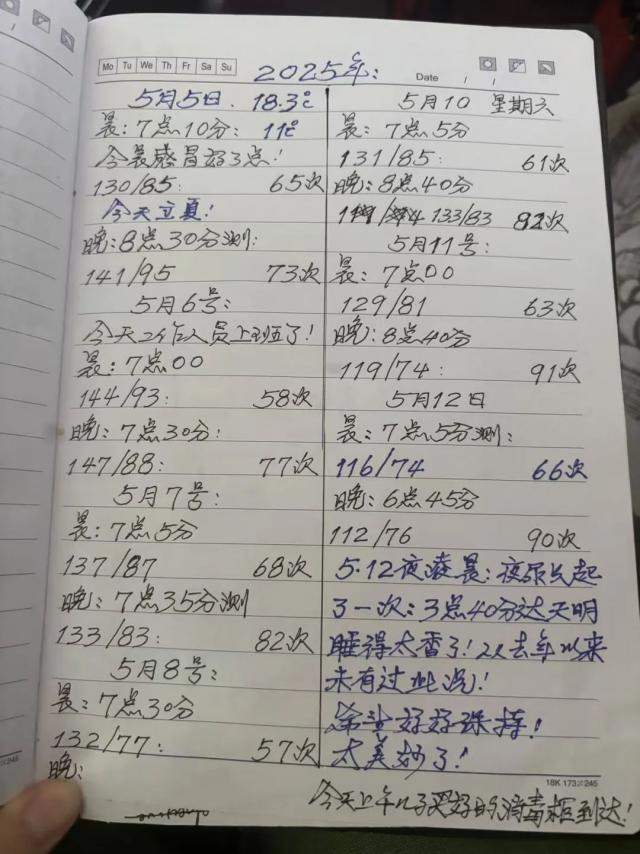 Mo Tu We Th Fr Sa Su
2025年:
Date / /
5月5日. 18.3℃
晨:7点10分: 11℃
今晨感冒好3点!
130/85: 65次
今天立夏!
晚:8点30分测:
141/95 73次
5月6号:
今天工作人员上班了!
晨:7点00
144/93: 58次
晚:7点30分:
147/88: 77次
5月7号:
晨:7点5分
137/87 68次
晚:7点35分测
133/83: 82次
5月8号:
晨:7点30分
132/77: 57次
晚:
5月10 星期六
晨:7点5分
131/85: 61次
晚:8点40分
133/83 82次
5月11号:
晨:7点00
129/81 63次
晚:8点40分
119/74: 91次
5月12日
晨:7点5分测:
116/74 66次
晚:6点45分
112/76 90次
5.12夜凌晨:夜尿只起
了一次:3点40分达天明
睡得太香了!从去年以来
未有过此况!
好好保持!
太美妙了!
18K 173×245
今天上午儿子买好的消毒柜到达!